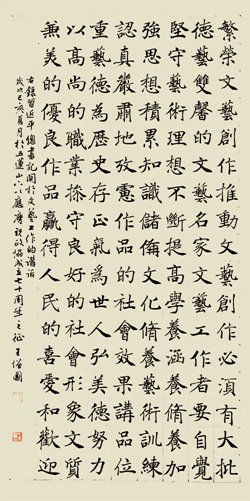 繁榮文藝創作推動文藝創作必須有大批
德藝雙馨的文藝名家文藝工作者要自覺
堅守藝術理想不斷提高學養涵養修養加
強思想積累知識儲備文化修養藝術訓練
認真嚴肅地攷慮作品的社會效果講品位
重藝德為歷史存正氣為世人弘美德努力
以高尚的職業操守良好的社會形象文質
兼美的優良作品贏得人民的喜愛和歡迎
右錄習近平總書記關於文藝工作的講話
歲次己亥夏月於五蓮山 慶祝政協成立七十周年之征 王